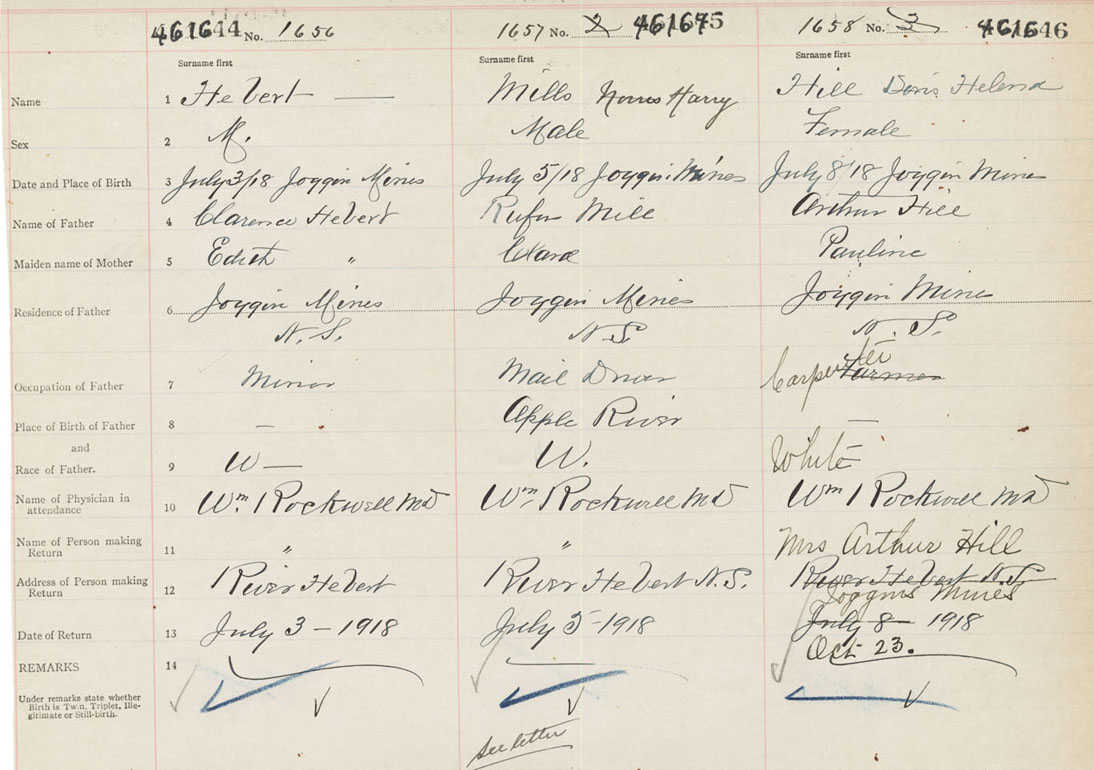 461644 No. 1656 1657 No. 2 461645 1658 No. 3 461646
Surname first Surname first Surname first
Name 1 Hebert — Mills Norris Harry Hill Doris Helena
Sex 2 M. Male Female
Date and Place of Birth 3 July 3/18 Joggin Mines July 5/18 Joggin Mines July 8/18 Joggin Mines
Name of Father 4 Clarence Hebert Rufus Mill Arthur Hill
Maiden name of Mother 5 Edith " Pauline
Residence of Father 6 Joggin Mines Joggin Mines Joggin Mines
N. S. N. S. N. S.
Occupation of Father 7 Minor Mail Driver Carpenter Farmer
Place of Birth of Father 8 — Apple River —
and
Race of Father. 9 W — W. White
Name of Physician in
attendance 10 Wm. Rockwell MD Wm Rockwell MD Wm Rockwell MD
Name of Person making
Return 11 " " Mrs Arthur Hill
Address of Person making
Return 12 River Hebert River Hebert N. S. River Hebert N. S.
Joggins Mines
Date of Return 13 July 3 – 1918 July 5 – 1918 July 8 – 1918
Oct 23.
REMARKS 14
Under remarks state whether
Birth is Twin, Triplet, Ille-
gitimate or Still-birth.
See letter